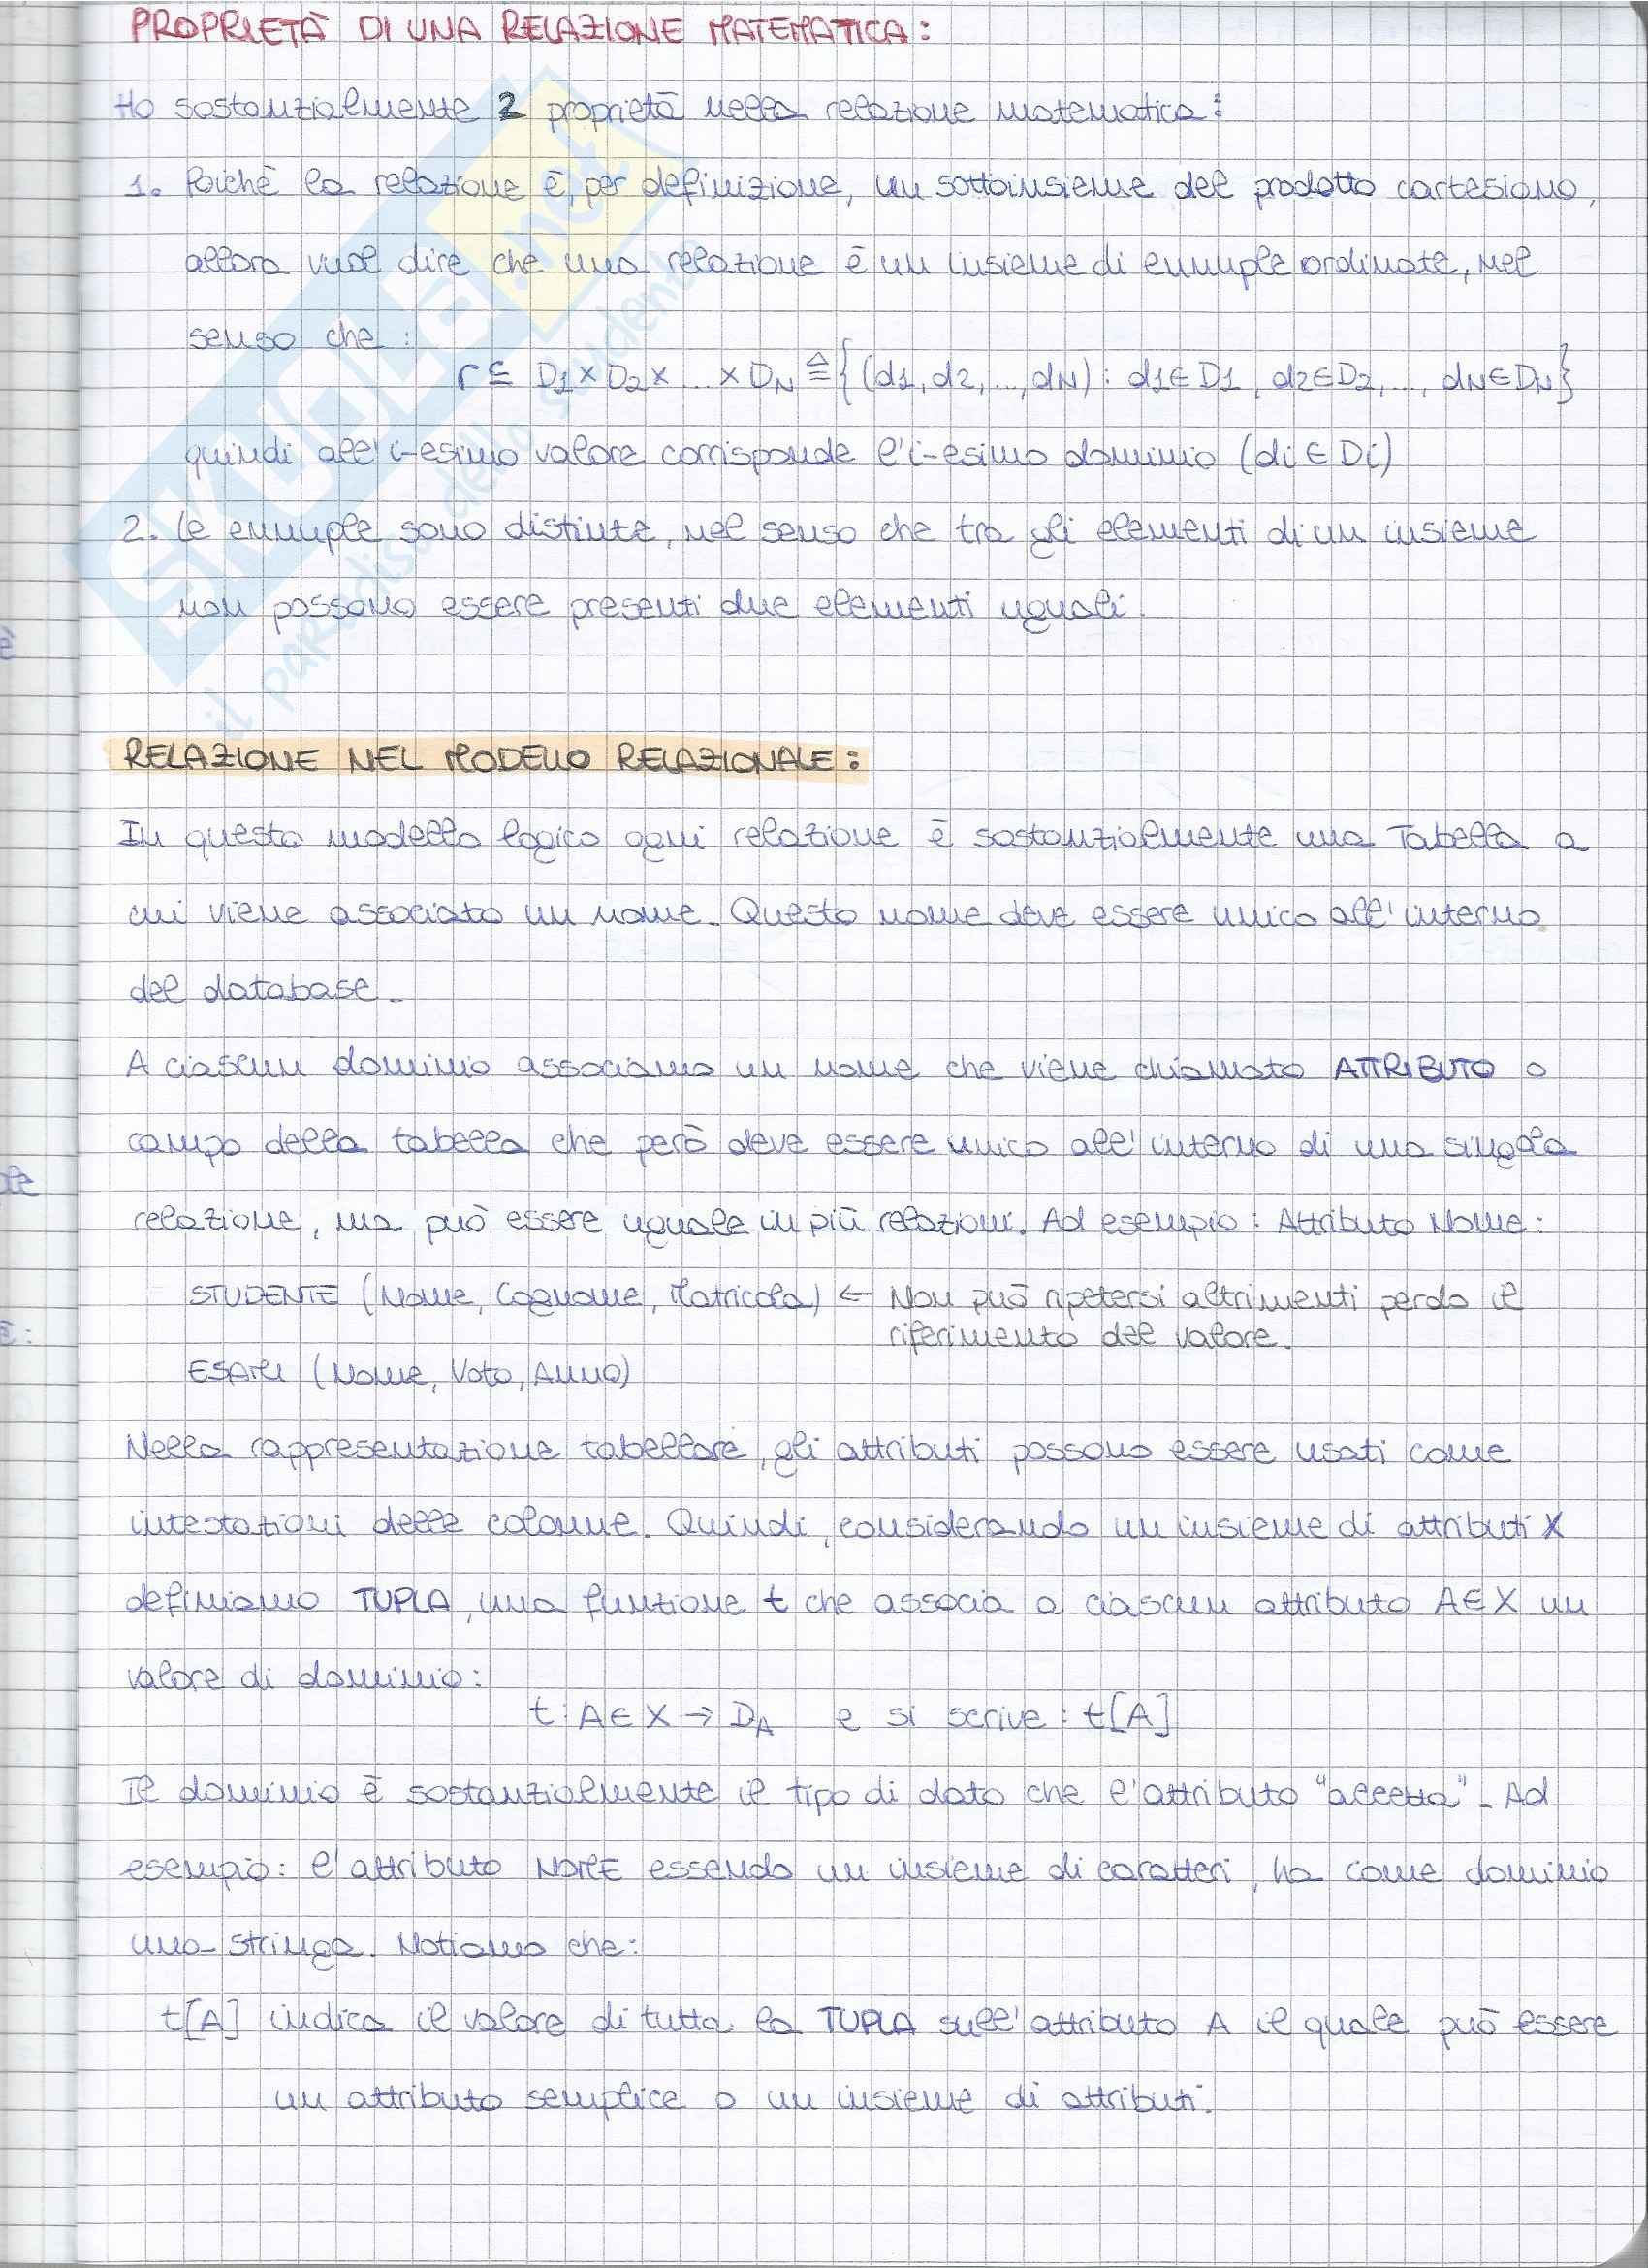 PROPRIETÀ DI UNA RELAZIONE MATEMATICA:
Ho sostanzialmente 2 proprietà nella relazione matematica:
1. Poichè la relazione è, per definizione, un sottoinsieme del prodotto cartesiano,
allora vuol dire che una relazione è un insieme di ennuple ordinate, nel
senso che:
r ⊆ D1 x D2 x ... x DN ≙ {(d1, d2, ..., dN) : d1 ∈ D1, d2 ∈ D2, ..., dN ∈ DN}
quindi all'i-esimo valore corrisponde l'i-esimo dominio (di ∈ Di)
2. Le ennuple sono distinte, nel senso che tra gli elementi di un insieme
non possono essere presenti due elementi uguali.
RELAZIONE NEL MODELLO RELAZIONALE:
In questo modello logico ogni relazione è sostanzialmente una Tabella a
cui viene associato un nome. Questo nome deve essere unico all'interno
del database.
A ciascun dominio associamo un nome che viene chiamato ATTRIBUTO o
campo della tabella che però deve essere unico all'interno di una singola
relazione, ma può essere uguale in più relazioni. Ad esempio: Attributo Nome:
STUDENTE (Nome, Cognome, Matricola) ← Non può ripetersi altrimenti perdo il
riferimento del valore.
ESAMI (Nome, Voto, Anno)
Nella rappresentazione tabellare, gli attributi possono essere usati come
intestazioni delle colonne. Quindi, considerando un insieme di attributi X
definiamo TUPLA, una funzione t che associa a ciascun attributo A ∈ X un
valore di dominio:
t: A ∈ X → DA e si scrive: t[A]
Il dominio è sostanzialmente il tipo di dato che l'attributo "accetta". Ad
esempio: l'attributo NOME essendo un insieme di caratteri, ha come dominio
una stringa. Notiamo che:
t[A] indica il valore di tutta la TUPLA sull'attributo A il quale può essere
un attributo semplice o un insieme di attributi.
SKUOLA.net
il paradiso dello studente